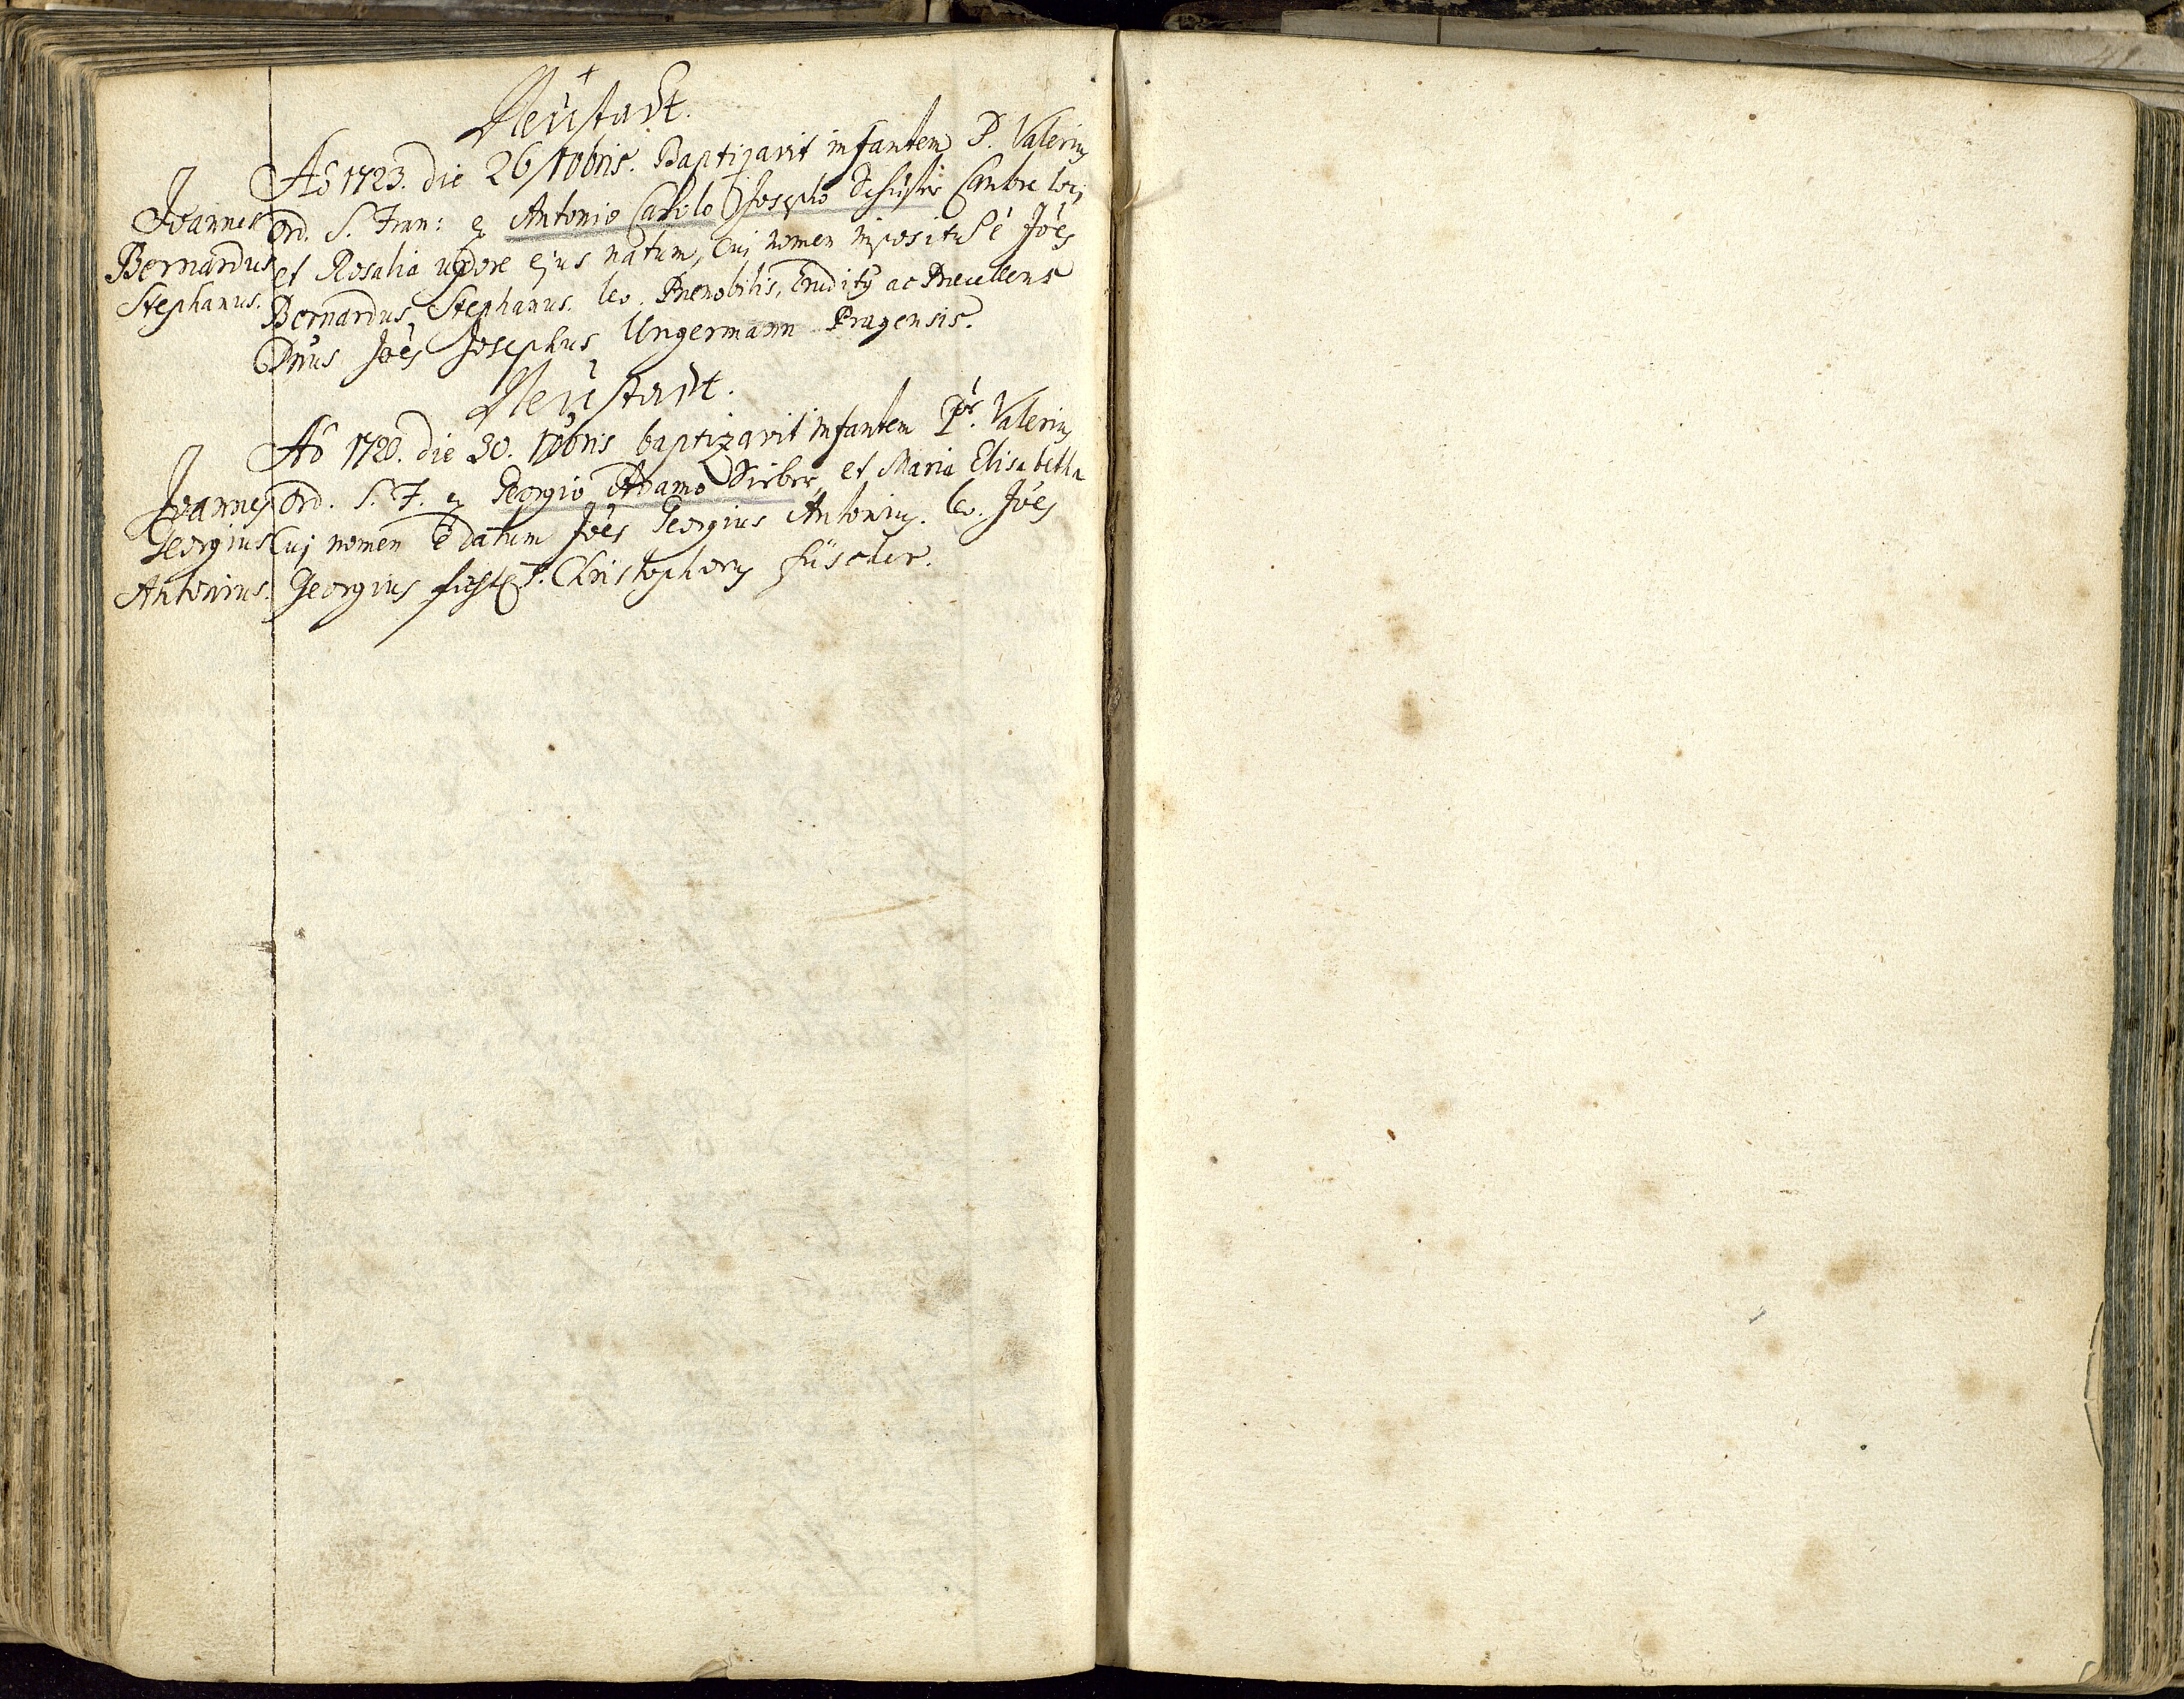 Neüstadt.
Joannes
Bernardus
Stephanus.
Aõ 1723. die 26 10bris. Baptizavit infantem P. Valerius
Ord. S. Fran: ex Antonio Carolo Josepho Schuster Cantore loci
et Rosalia uxore ejus natum, Cuj nomen impositũ ẽ Joẽs
Bernardus Stephanus. Lev. Prænobilis, Eruditus ac Præcellens
Dñus Joẽs Josephus Ungermann Pragensis.
Neüstadt.
Joannes
Georgius
Antonius.
Aõ 1723. die 30. 10bris baptizavit infantem Pr. Valerius
Ord. S. F. ex Georgio Adamo Sieber, et Maria Elisabetha
Cuj nomen ẽ datum Joẽs Georgius Antonius. Lev. Joẽs
Georgius T. Christophorus